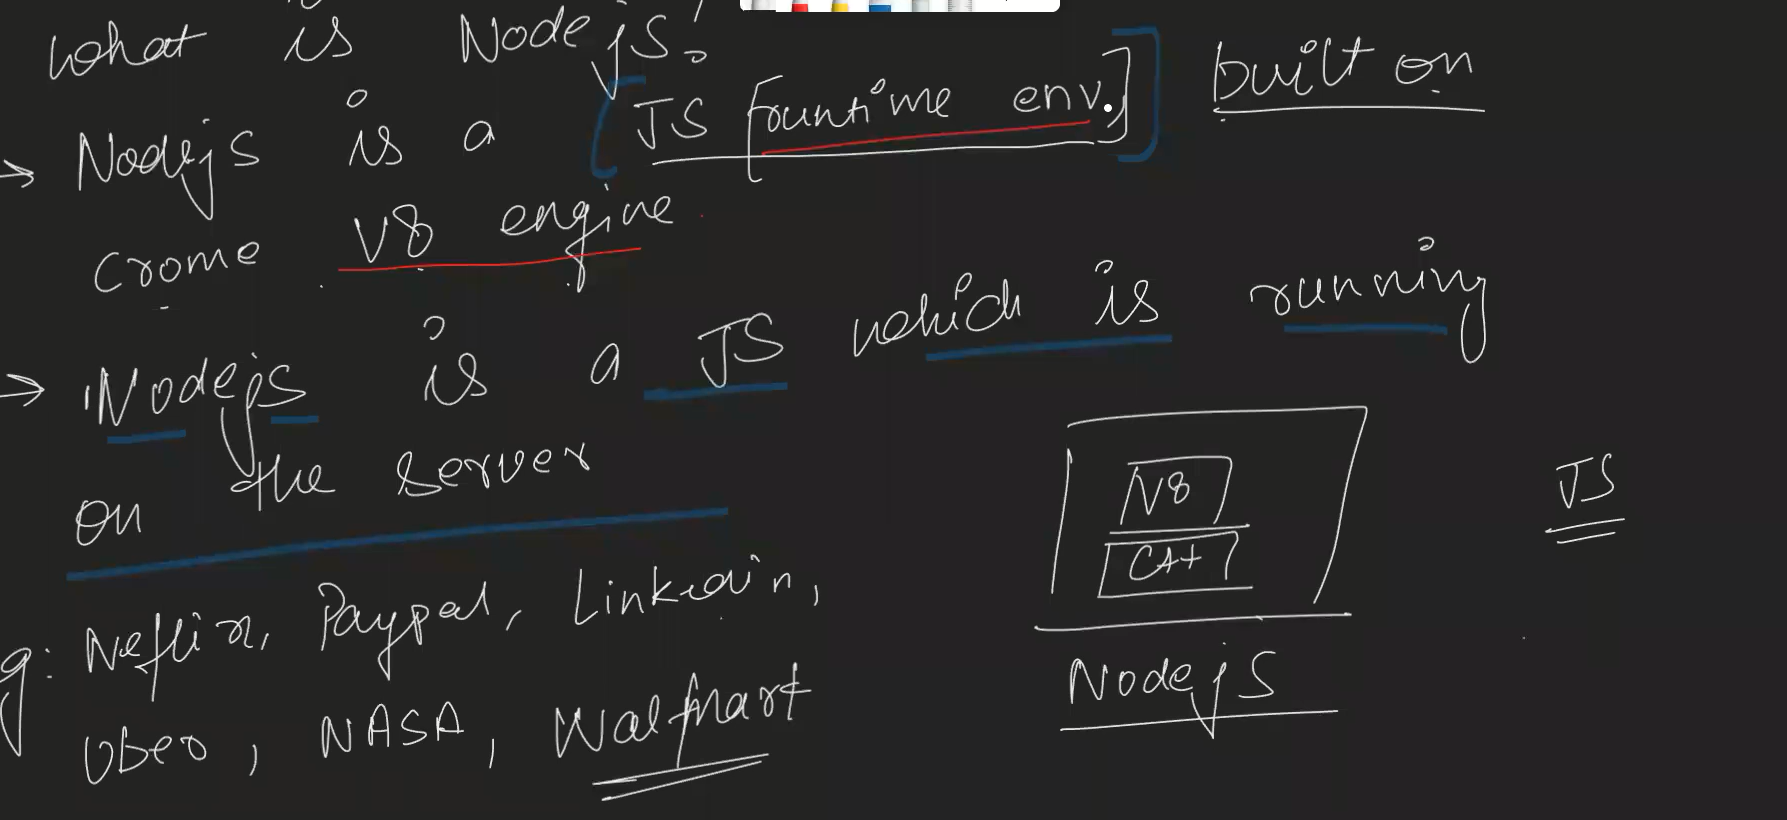 what is Nodejs?
→ Nodejs is a JS [runtime env.] built on
Crome V8 engine
→ Nodejs is a JS which is running
on the server
g: Neflix, Paypal, Linkedin,
Uber, NASA, Walmart
V8
C++
Nodejs
JS